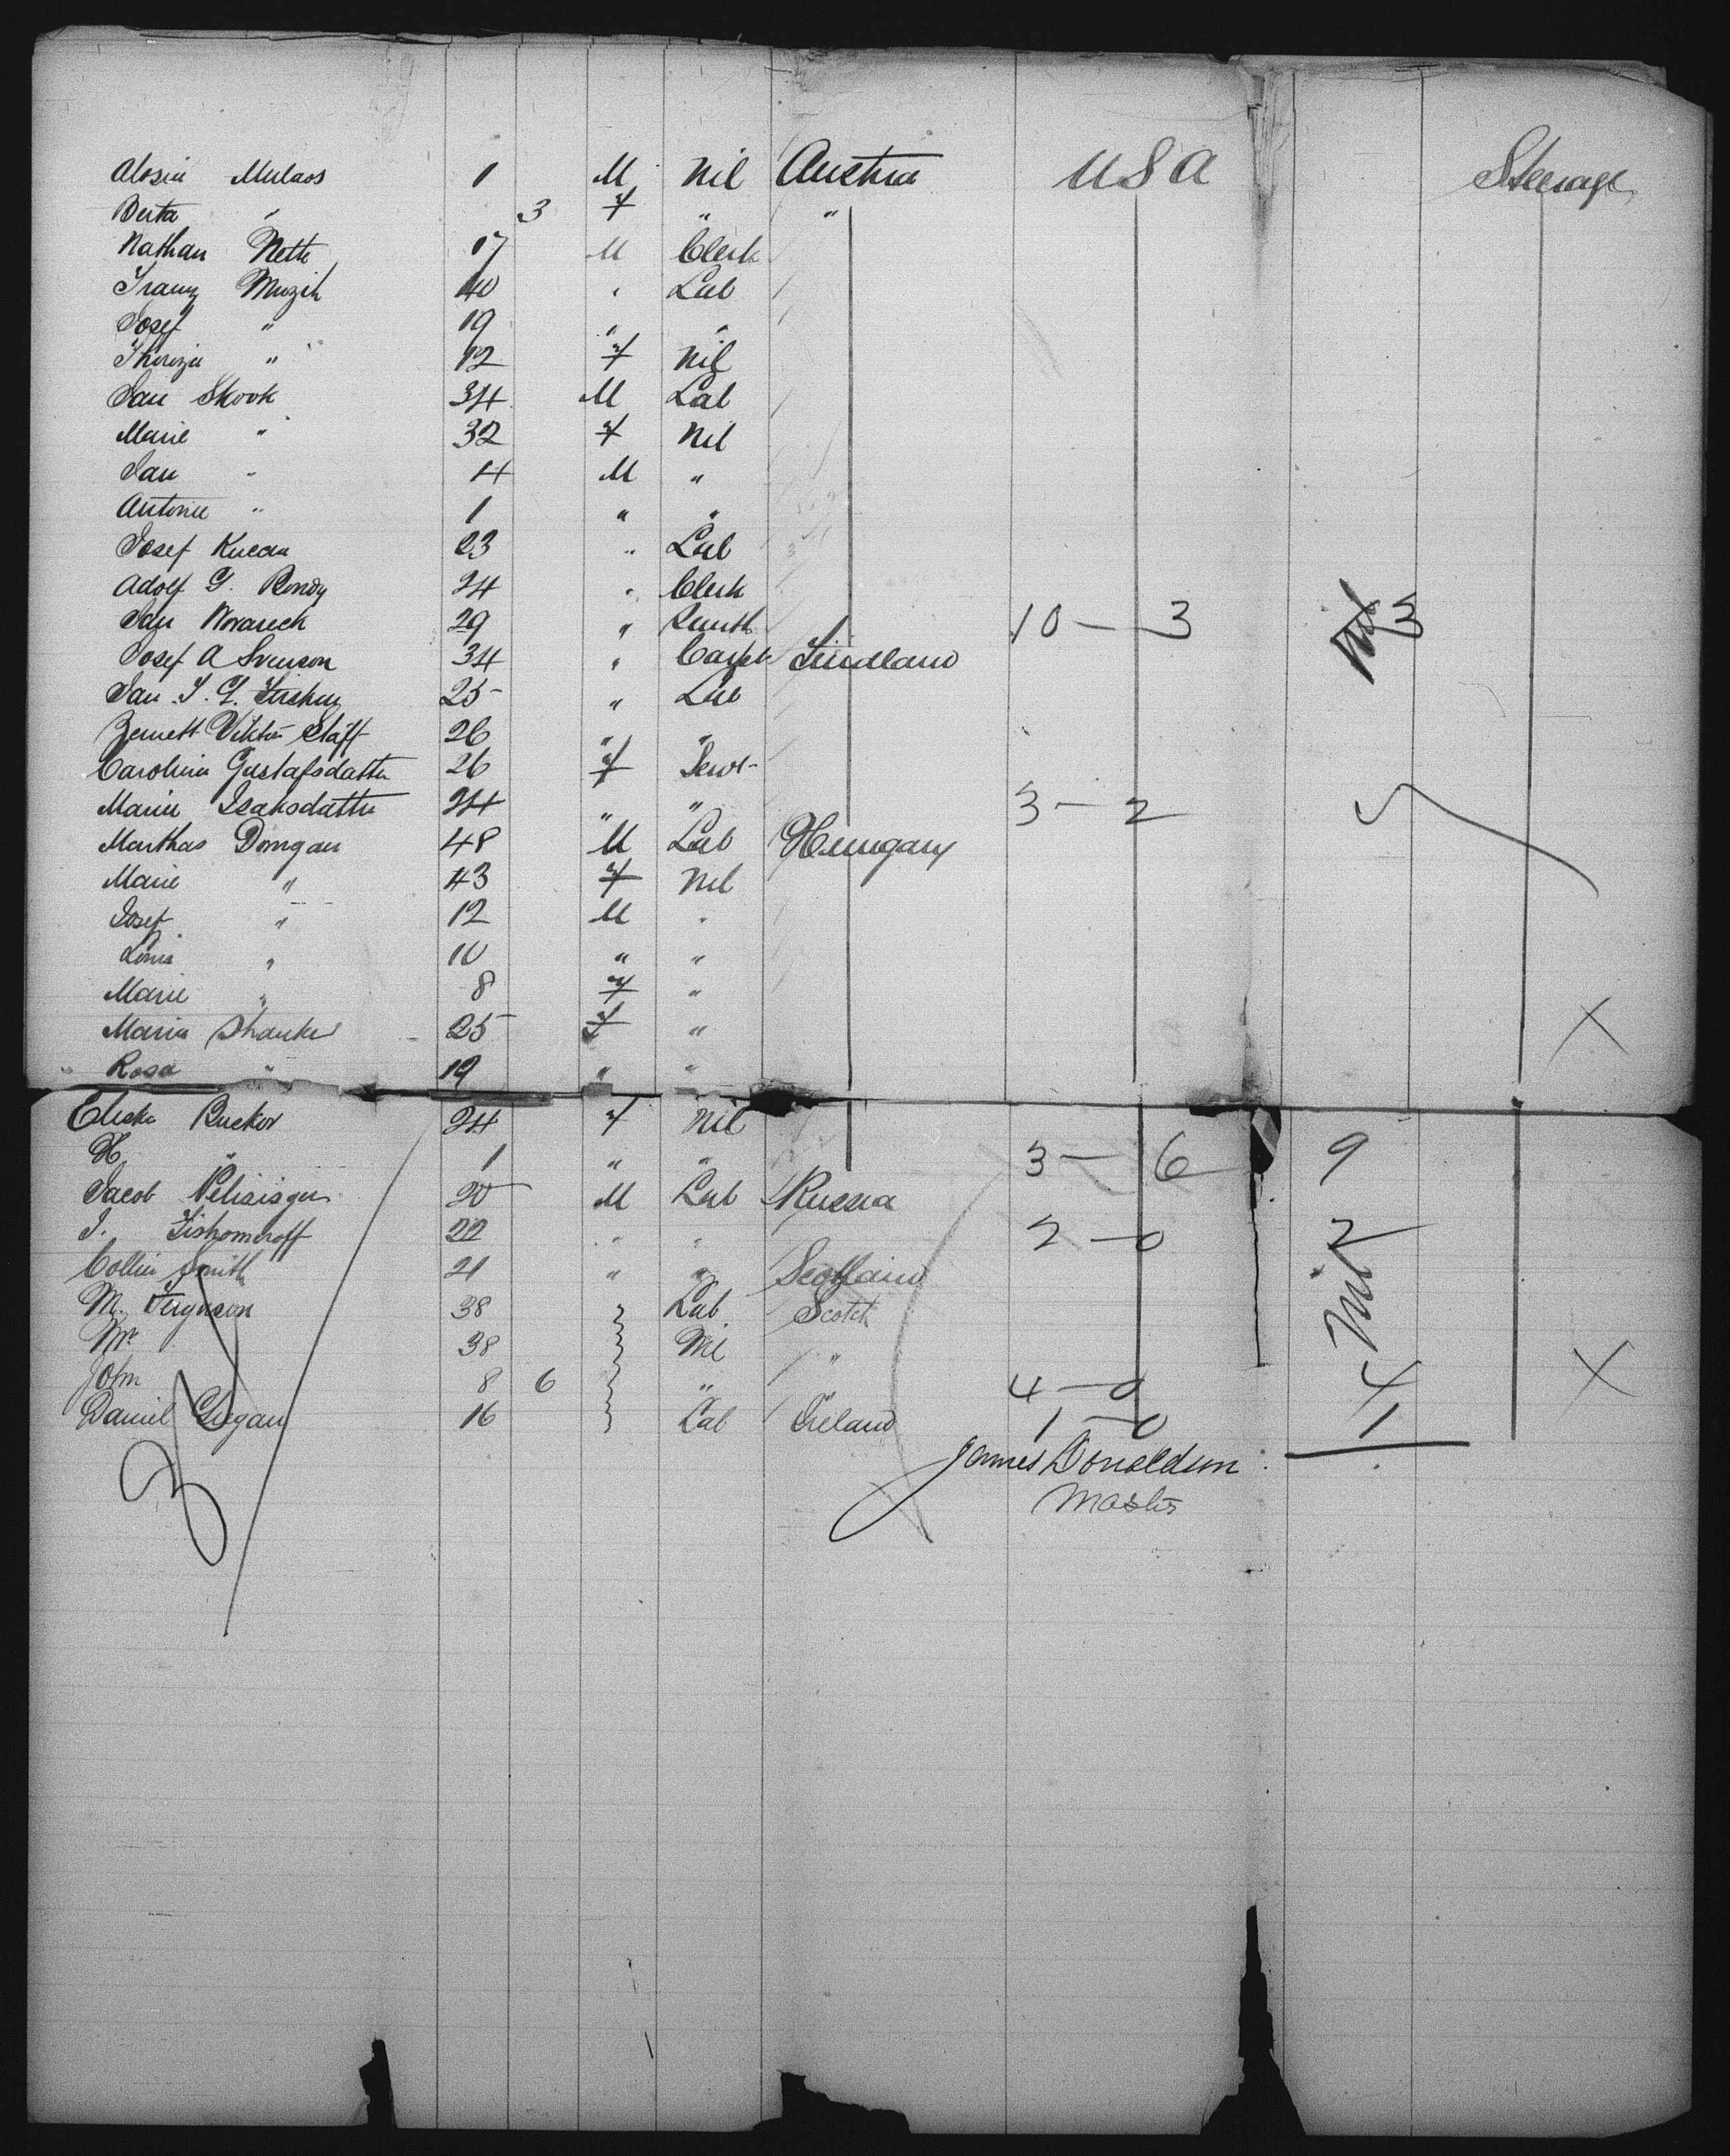 Alosia Mulaos 1 M Nil Austria USA Steerage
Berta " 3 F " "
Nathan Nette 17 M Clerk
Franz Muzik 40 " Lab
Josef " 19 " "
Therezia " 12 F Nil
Jan Skook 34 M Lab
Marie " 32 F Nil
Jan " 4 M "
Antonie " 1 " "
Josef Kucan 23 " Lab
Adolf G. Rondy 24 " Clerk
Jan Novareck 29 " Smith 10 - 3 13
Josef A Svenson 34 " Carpt Finland
Jan. J. G. 25 " Lab
Viktor Staff 26 " "
Carolina Gustafsdatter 26 F Servt
Maria Isaksdatter 24 " " 3 - 2 5
Marthas Domgan 48 M Lab Hungary
Marie " 43 F Nil
Josef " 12 M "
Louis " 10 " "
Marie " 8 F "
Maria Shanker 25 F " X
Rosa " 19 " "
Eliska Ruckor 24 F Nil
H. " 1 " " 3 - 6 9
Jacob 20 M Lab Russia
I. Tishomeroff 22 " " 2 - 0 2
Collin Smith 21 " " Scotland Nil
M. Ferguson 38 Lab. Scotch
Mr. 38 Nil "
John 8 6 " " 4 - 0 4 X
Daniel 16 Lab Ireland 1 - 0 1
James Donaldson
Master